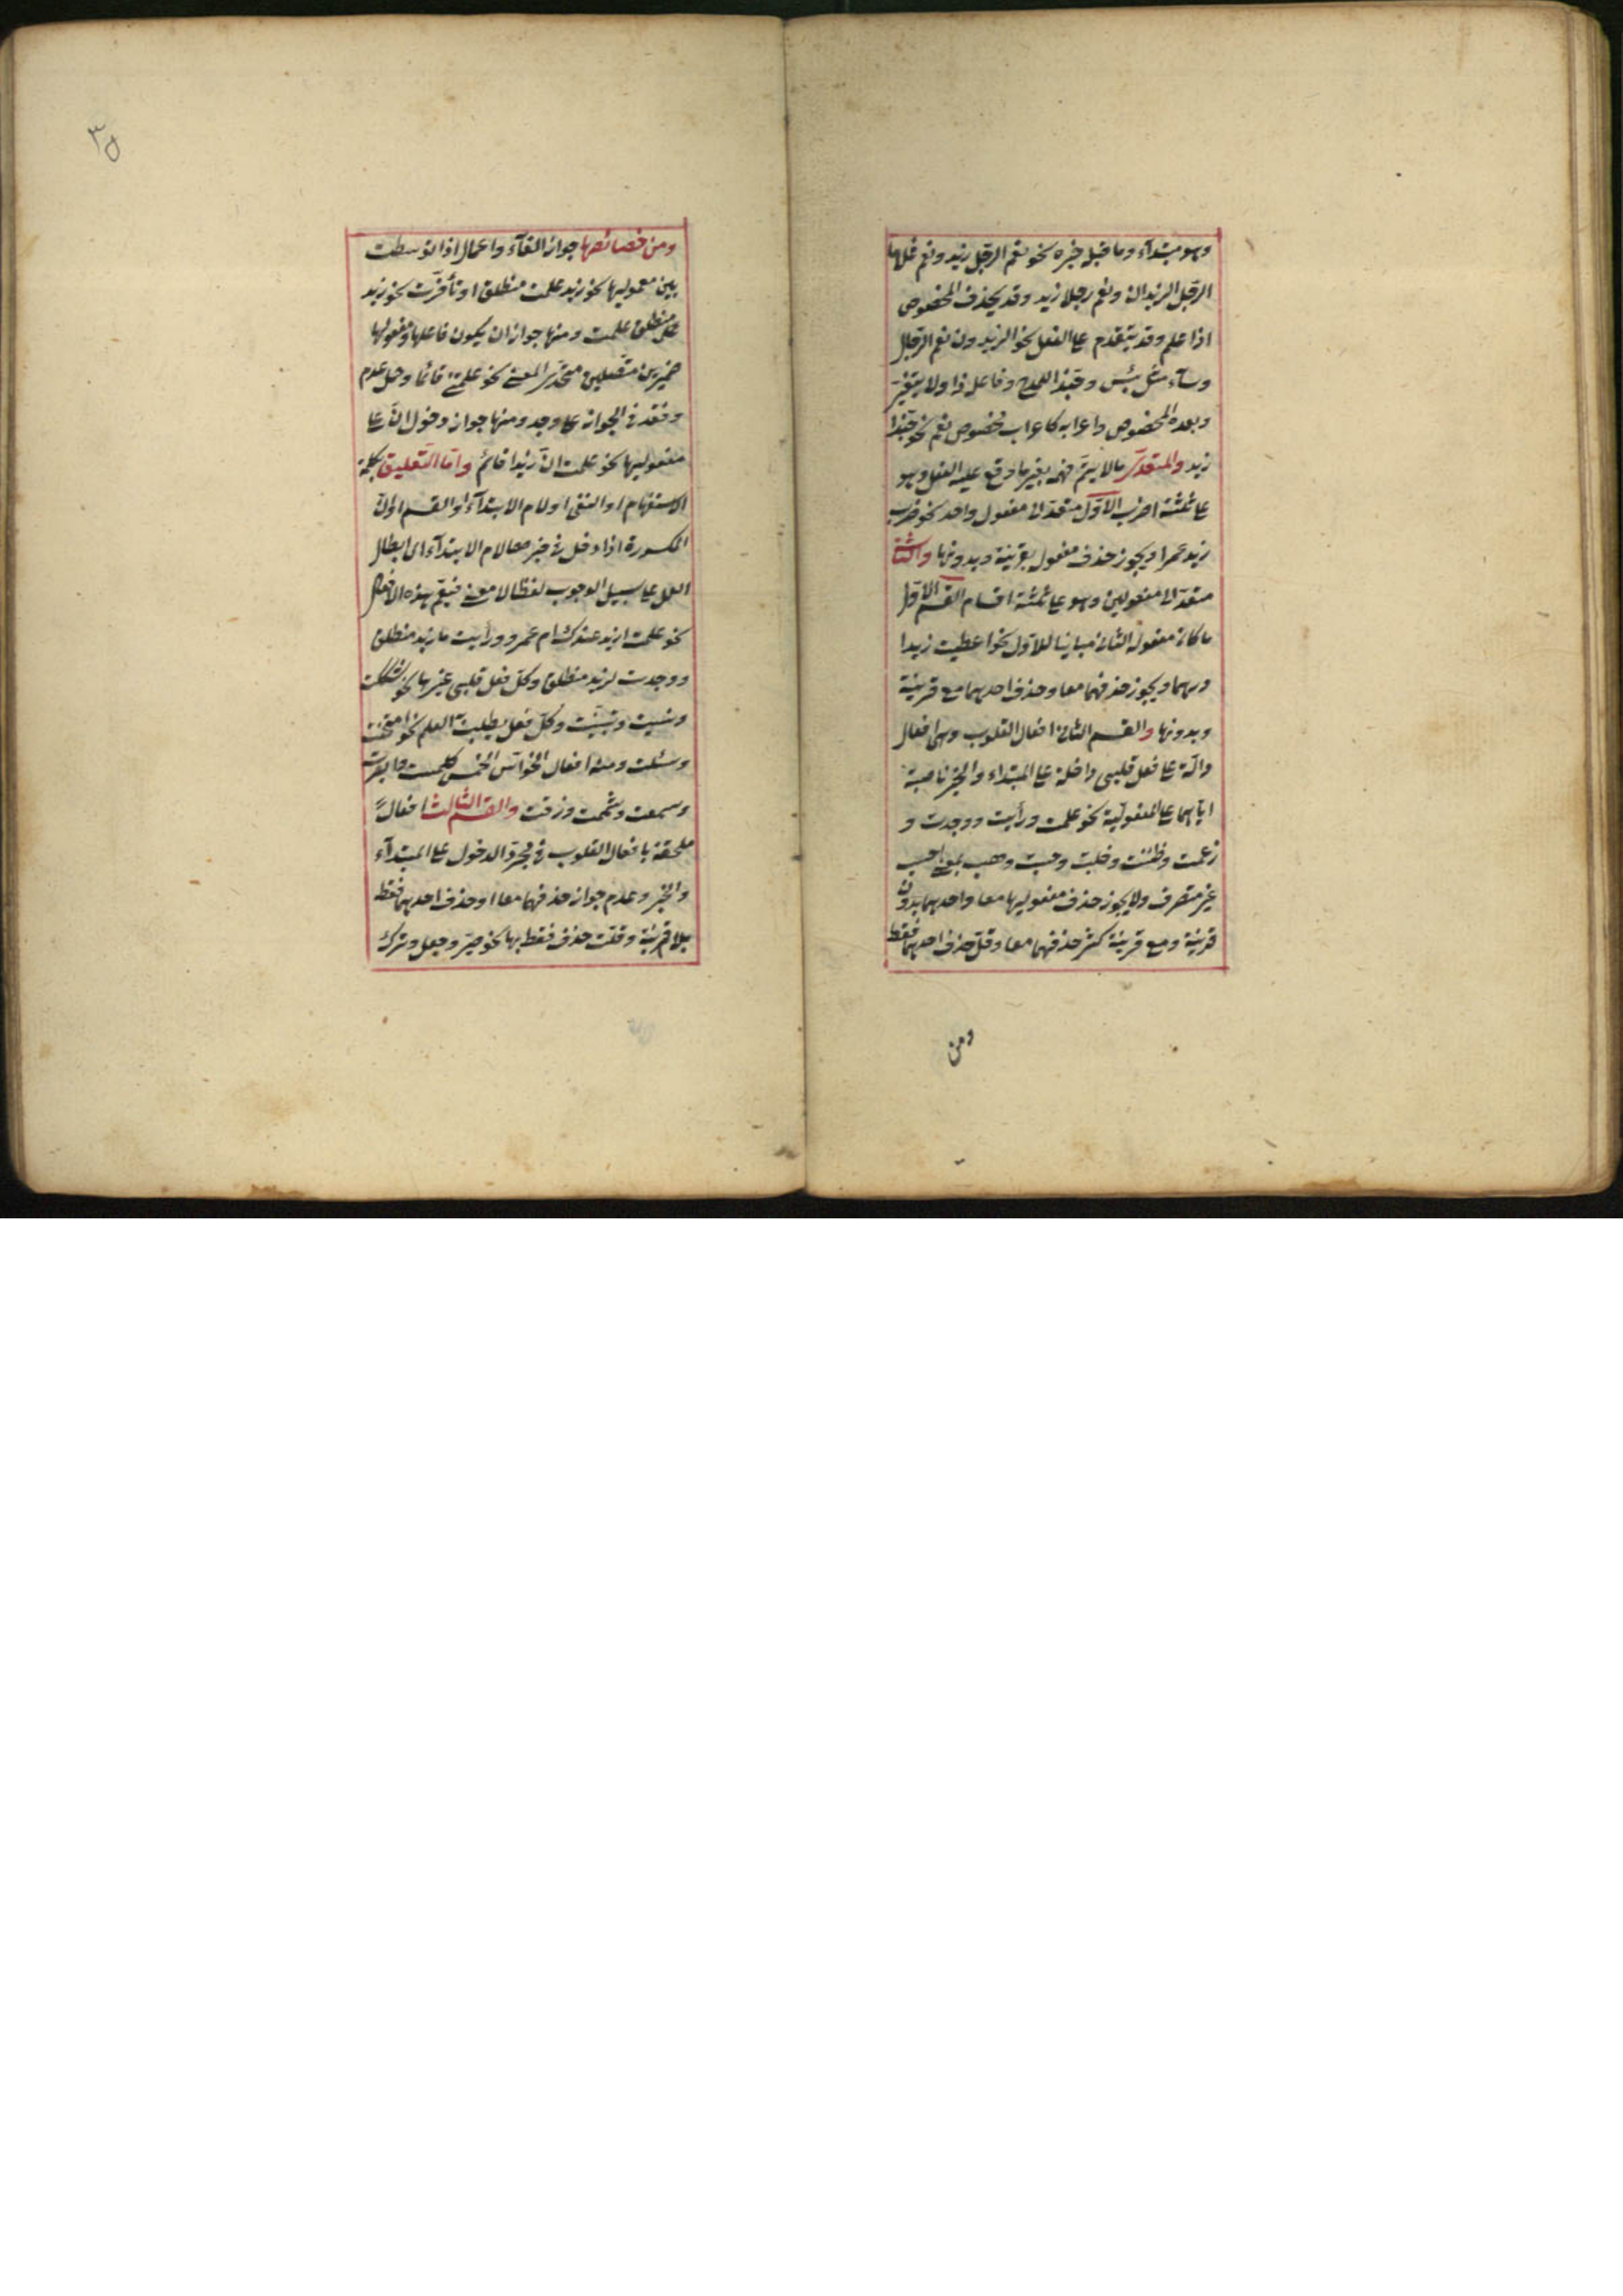 وهو مبتدآء وما قبله خبره نحو نعم الرجل زيد ونعم غلاما
الرجل الزيدان ونعم رجلا زيد وقد يحذف المخصوص
اذا علم وقد يتقدم على الفعل نحو الزيدون نعم الرجل
وسآء مثل بئس وحبذا للمدح وفاعله ذا ولا يتغير
وبعده المخصوص واعرابه كاعراب مخصوص نعم نحو حبذا
زيد والمتعدى ما لا يتم فهمه بغير ما وقع عليه الفعل وهو
على ثلثة اضرب الاول متعد الى مفعول واحد نحو ضرب
زيد عمرا ويجوز حذف مفعوله بقرينة وبدونها والثانى
متعد الى مفعولين وهو على ثلثة اقسام القسم الاول
ما كان مفعوله الثانى مباينا للاول نحو اعطيت زيدا
درهما ويجوز حذفهما معا وحذف احدهما مع قرينة
وبدونها والقسم الثانى افعال القلوب وهى افعال
دالة على فعل قلبى داخلة على المبتداء والخبر ناصبة
اياهما على المفعولية نحو علمت ورأيت ووجدت و
زعمت وظننت وخلت وحسبت وهب بمعنى احسب
غير متصرف ولا يجوز حذف مفعوليها معا واحدهما بدون
قرينة ومع قرينة كثر حذفهما معا وقل حذف احدهما فقط
ومن
٣٥
ومن خصائصها جواز الغآء واعمال اذا توسطت
بين معموليها نحو زيد علمت منطلق او تأخرت نحو زيد
منطلق علمت ومنها جواز ان يكون فاعلها ومفعولها
ضميرين متصلين متحدى المعنى نحو علمتنى قائما وحمل عدم
وفقد فى الجواز على وجد ومنها جواز دخول انّ على
مفعوليها نحو علمت انّ زيدا قائم وامّا التعليق بكلمة
الاستفهام او النفى او لام الابتدآء او القسم او انّ
المكسورة اذا دخل فى خبرها لام الابتدآء اى ابطال
العمل على سبيل الوجوب لفظا لا معنى فيعم هذه الافعال
نحو علمت ازيد عندك ام عمرو ورأيت ما زيد منطلق
ووجدت لزيد منطلق وكل فعل قلبى غيرها نحو شككت
ونسيت وتبينت وكل فعل يطلب به العلم نحو امتحنت
وسئلت ومنه افعال الحواس الخمس كلمست وابصرت
وسمعت وشممت وذقت والقسم الثالث افعال
ملحقة بافعال القلوب فى مجرد الدخول على المبتدآء
والخبر وعدم جواز حذفهما معا او حذف احدهما فقط
بلا قرينة وقلت حذف فقط بها نحو صير وجعل وترك